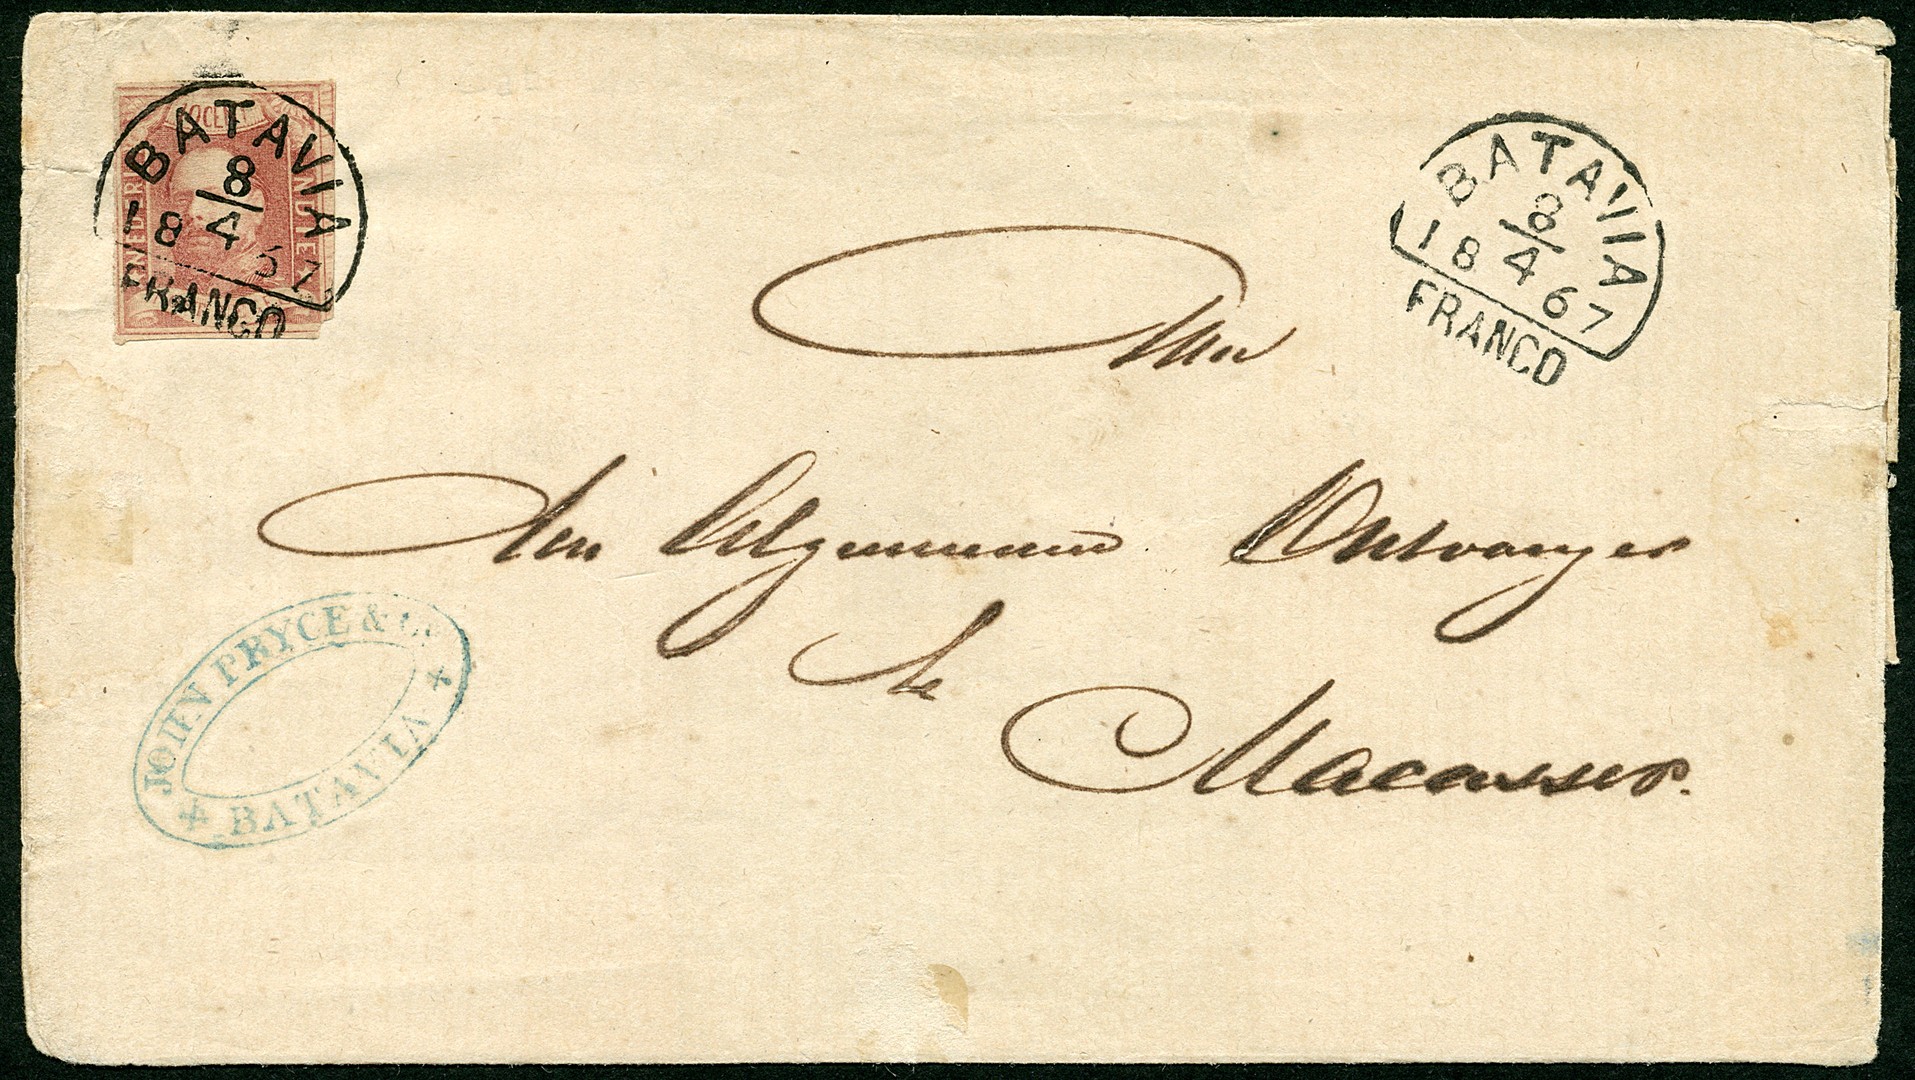 10 CENT
NEDERL INDIE
BATAVIA
8
4
1867
FRANCO
BATAVIA
8
4
1867
FRANCO
Aan
den Algemeenen Ontvanger
te
Macasser.
JOHN PRYCE & Co
+ BATAVIA +